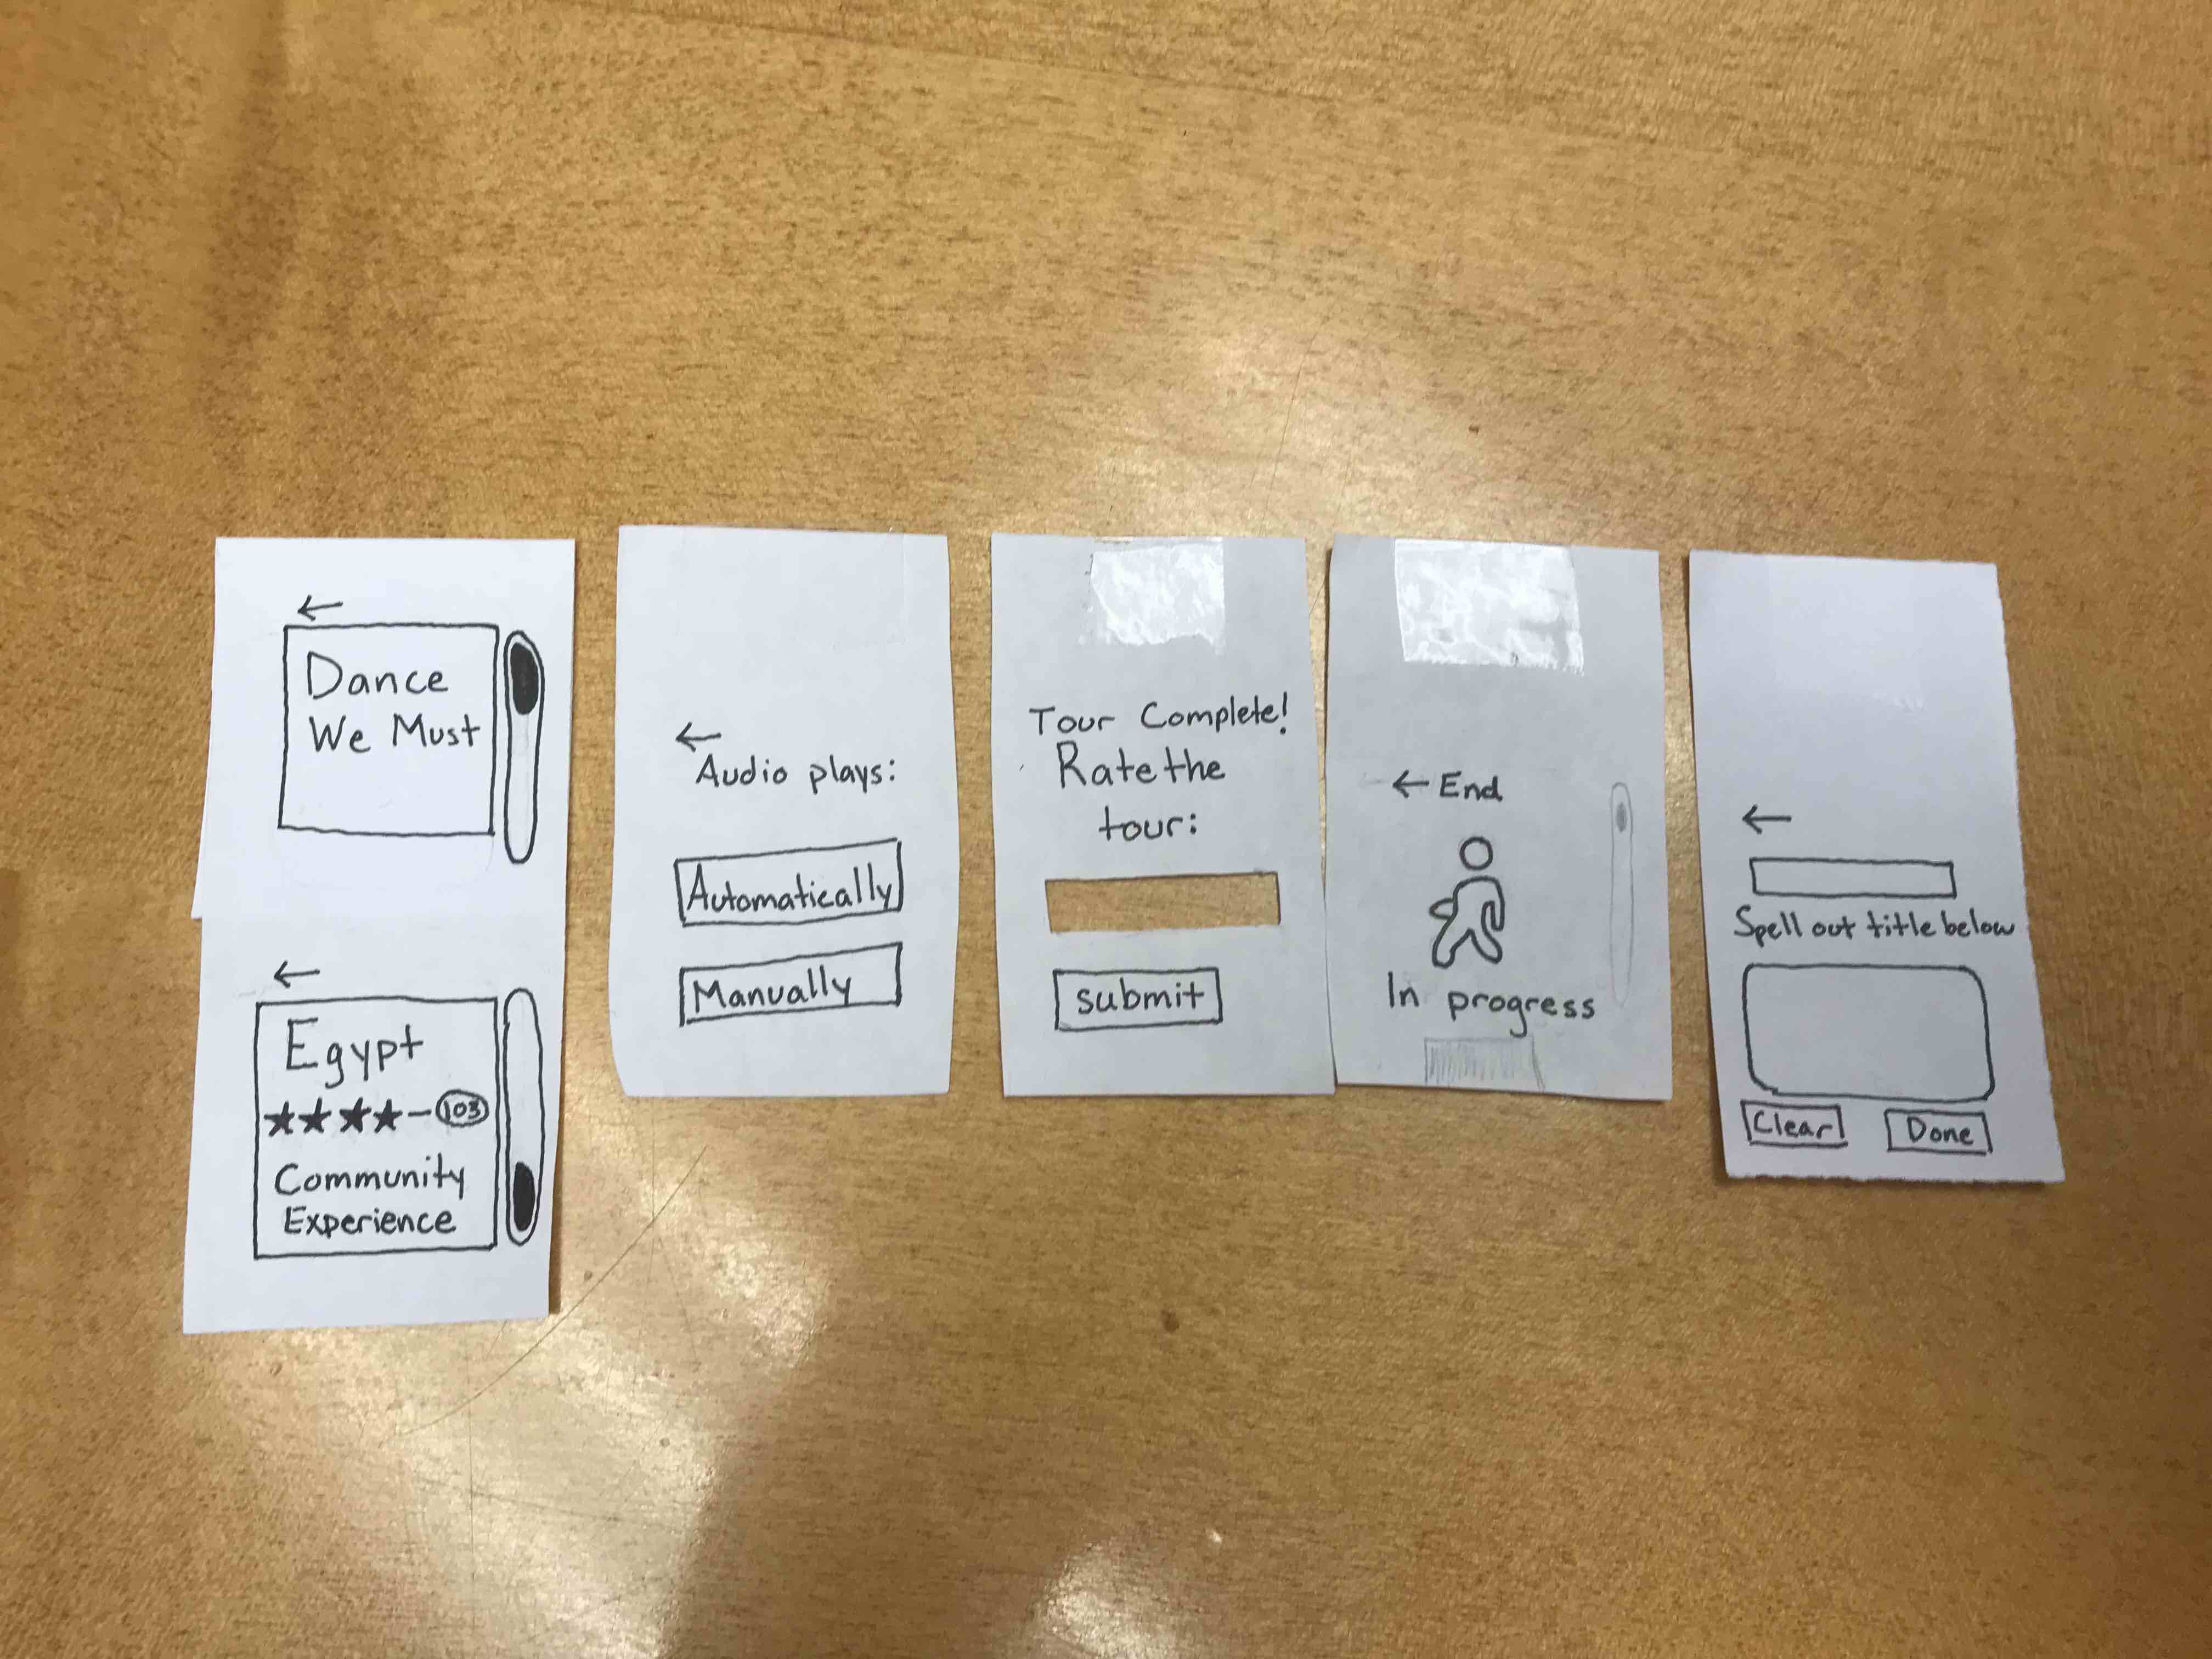 ←
Dance
We Must
←
Egypt
★★★★– 103
Community
Experience
←
Audio plays:
Automatically
Manually
Tour Complete!
Rate the
tour:
submit
← End
In progress
←
Spell out title below
Clear
Done